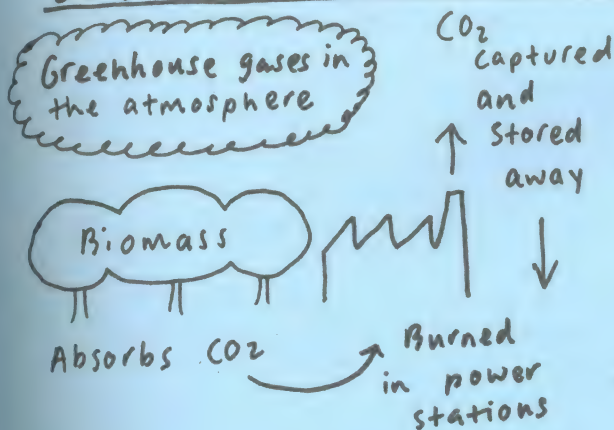 Greenhouse gases in
the atmosphere
CO2
captured
and
stored
away
Biomass
Absorbs CO2
Burned
in power
stations